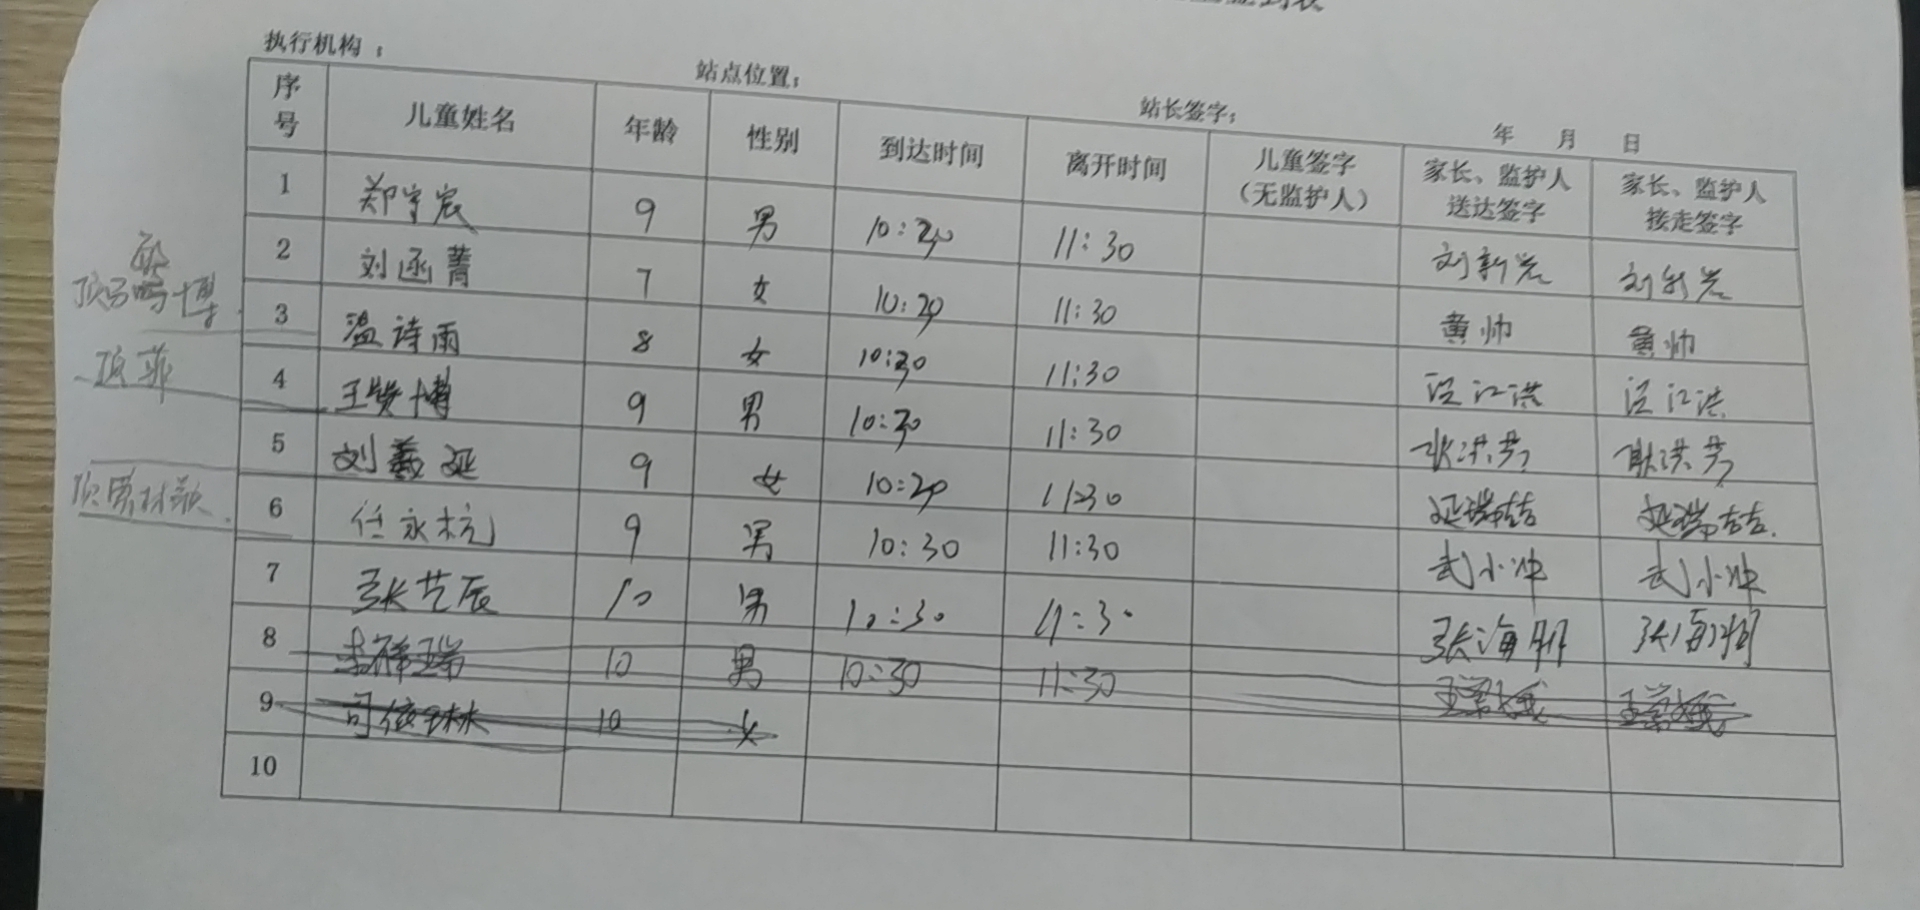 签到表
执行机构：
站点位置：
站长签字：
年 月 日
序号 儿童姓名 年龄 性别 到达时间 离开时间 儿童签字（无监护人） 家长、监护人送达签字 家长、监护人接走签字
1 郑宇宸 9 男 10:20 11:30 刘新岩 刘新岩
2 刘函菁 7 女 10:20 11:30 黄帅 黄帅
3 温诗雨 8 女 10:30 11:30 江洪 江洪
4 王赞博 9 男 10:30 11:30 洪芳 耿洪芳
5 刘羲延 9 女 10:20 11:30
6 任永杭 9 男 10:30 11:30 武小冲 武小冲
7 张艺辰 10 男 10:30 11:30 张海朋 张海朋
8 李祥瑞 10 男 10:30 11:30
9 司依琳 10 女
10
顶 博
顶菲
顶